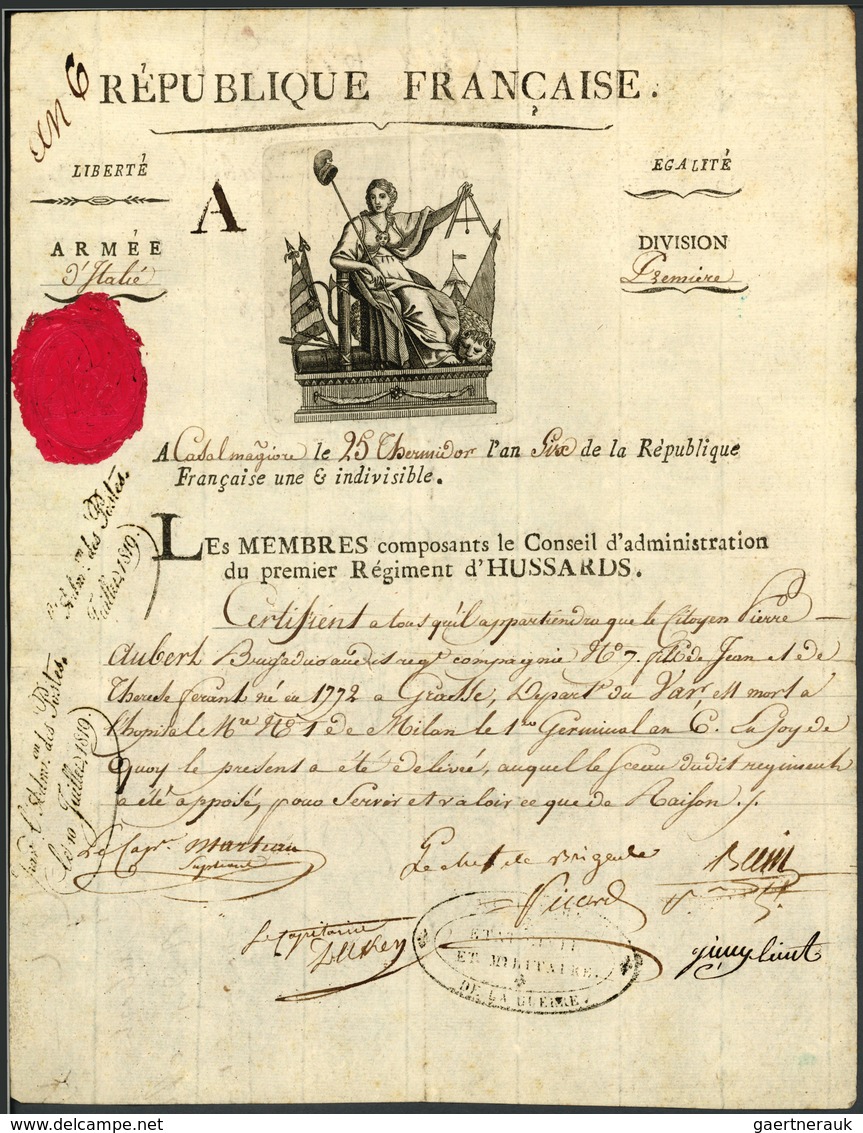 An 6
RÉPUBLIQUE FRANÇAISE.
LIBERTÉ
EGALITÉ
A
ARMÉE
d'Italie
DIVISION
Premiere
A Casalmagiore le 25 Thermidor l'an Six de la République
Française une & indivisible.
LES MEMBRES composants le Conseil d'administration
du premier Régiment d'HUSSARDS.
Certifient a tous qu'il appartiendra que le Citoyen Pierre
Aubert audit regt compagnie No 7. fils de Jean et de
Therese ferant né en 1772 a Grasse, Departt du Var est mort a
l'hopital Mre No 1 de Milan le 1er Germinal an 6. En foy de
Quoy le present a été delivré, auquel le sceau dudit regiment
a été apposé, pour Servir et valoir ce que de Raison ./.
Le Capne Marteau
Le chef de Brigade
Picard
Le Capitaine
ET MILITAIRE.
DE LA GUERRE
l'Admon des Postes.
Juillet 1819.
l'Admon des Postes.
Le 10 Juillet 1819.
gaertnerauk